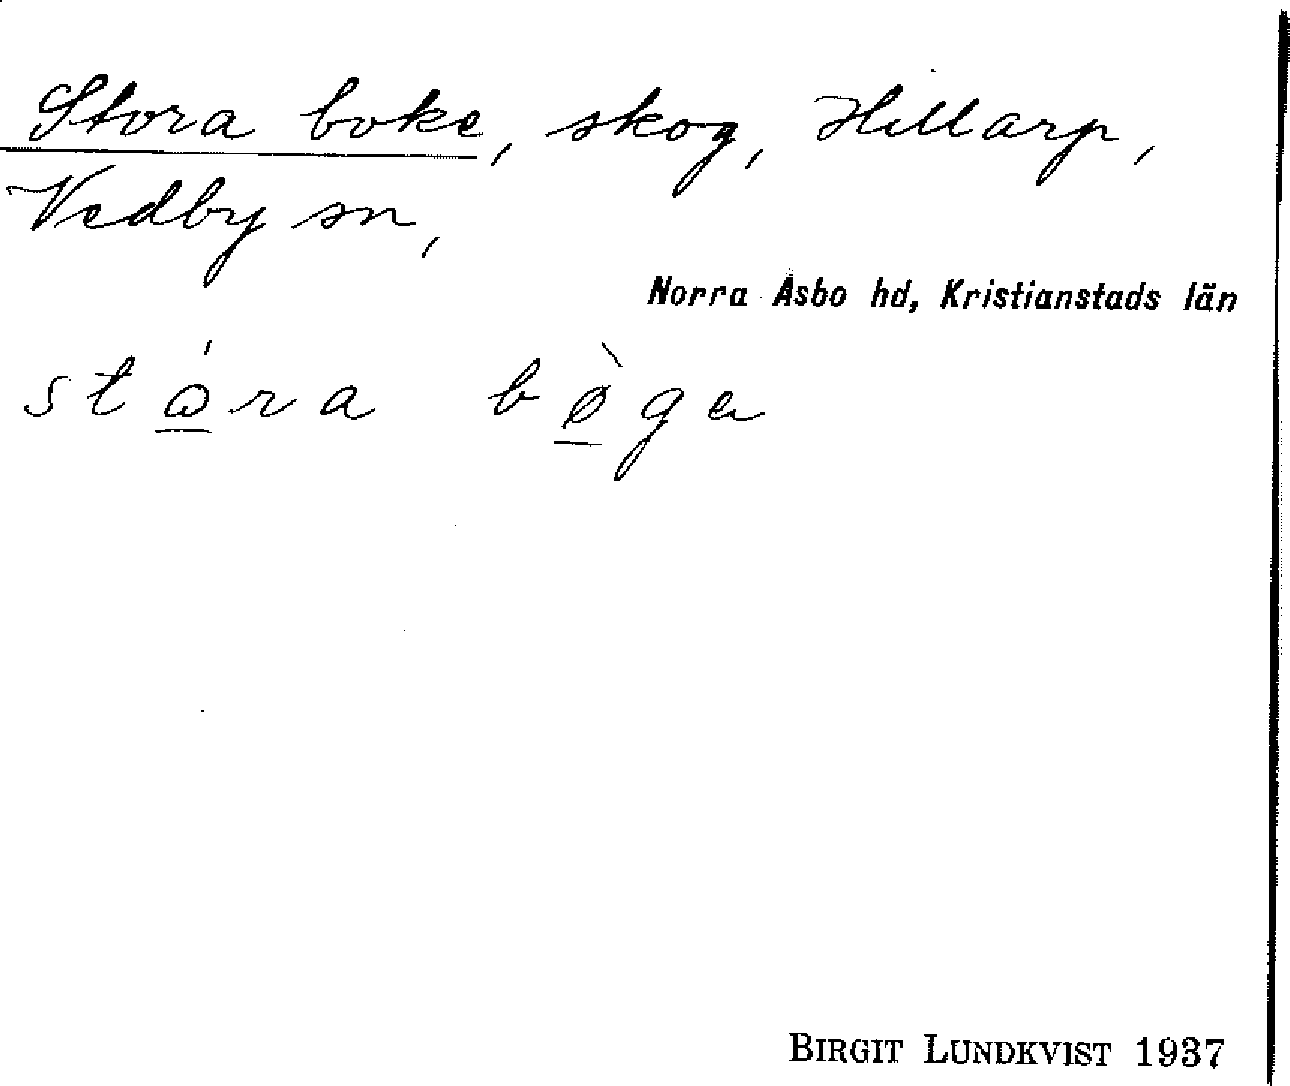 Stora boke, skog, Hillarp,
Vedby sn,
Norra Åsbo hd, Kristianstads län
stɷ́ra bø̀ga
BIRGIT LUNDKVIST 1937